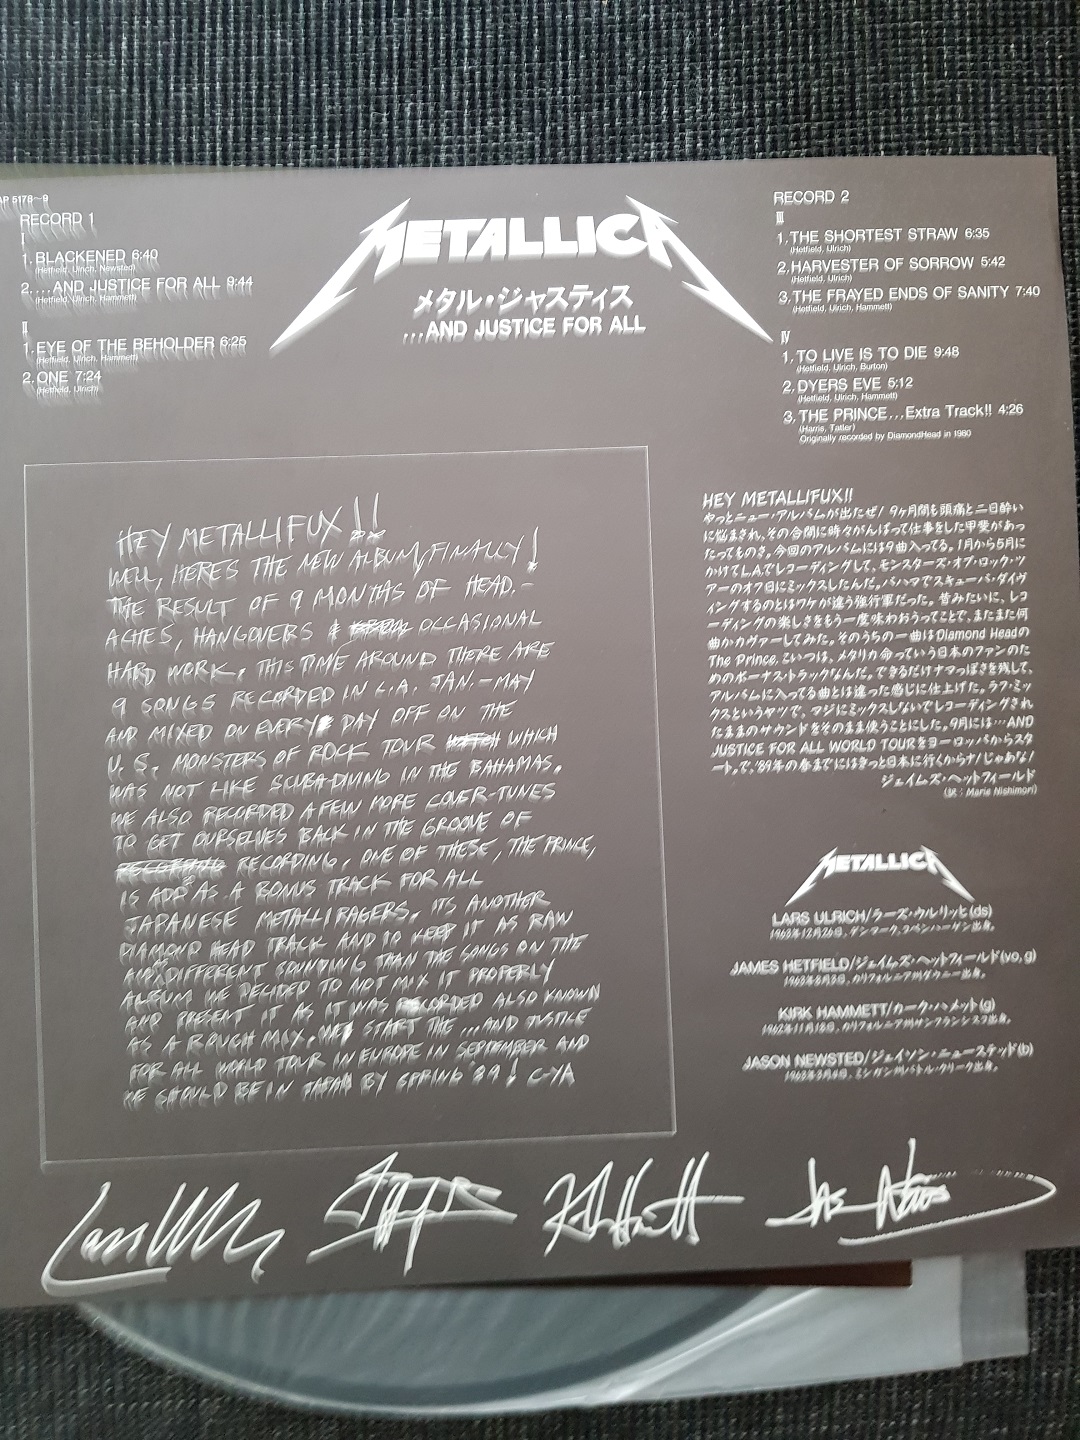 AP 5178~9
RECORD 1
I
1. BLACKENED 6:40
(Hetfield, Ulrich, Newsted)
2. ...AND JUSTICE FOR ALL 9:44
(Hetfield, Ulrich, Hammett)
II
1. EYE OF THE BEHOLDER 6:25
(Hetfield, Ulrich, Hammett)
2. ONE 7:24
(Hetfield, Ulrich)
METALLICA
メタル・ジャスティス
...AND JUSTICE FOR ALL
RECORD 2
III
1. THE SHORTEST STRAW 6:35
(Hetfield, Ulrich)
2. HARVESTER OF SORROW 5:42
(Hetfield, Ulrich)
3. THE FRAYED ENDS OF SANITY 7:40
(Hetfield, Ulrich, Hammett)
IV
1. TO LIVE IS TO DIE 9:48
(Hetfield, Ulrich, Burton)
2. DYERS EVE 5:12
(Hetfield, Ulrich, Hammett)
3. THE PRINCE...Extra Track!! 4:26
(Harris, Tatler)
Originally recorded by DiamondHead in 1980
HEY METALLIFUX!!
WELL, HERES THE NEW ALBUM, FINALLY!
THE RESULT OF 9 MONTHS OF HEAD-
ACHES, HANGOVERS & OCCASIONAL
HARD WORK. THIS TIME AROUND THERE ARE
9 SONGS RECORDED IN L.A. JAN.-MAY
AND MIXED ON EVERY DAY OFF ON THE
U.S. MONSTERS OF ROCK TOUR WHICH
WAS NOT LIKE SCUBA-DIVING IN THE BAHAMAS.
WE ALSO RECORDED A FEW MORE COVER-TUNES
TO GET OURSELVES BACK IN THE GROOVE OF
RECORDING. ONE OF THESE, THE PRINCE,
IS ADD AS A BONUS TRACK FOR ALL
JAPANESE METALLIRAGERS. ITS ANOTHER
DIAMOND HEAD TRACK AND TO KEEP IT AS RAW
AND DIFFERENT SOUNDING THAN THE SONGS ON THE
ALBUM WE DECIDED TO NOT MIX IT PROPERLY
AND PRESENT IT AS IT WAS RECORDED ALSO KNOWN
AS A ROUGH MIX. WE START THE ...AND JUSTICE
FOR ALL WORLD TOUR IN EUROPE IN SEPTEMBER AND
WE SHOULD BE IN JAPAN BY SPRING '89! C-YA
HEY METALLIFUX!!
やっとニュー・アルバムが出たぜ! 9ヶ月間も頭痛と二日酔い
に悩まされ、その合間に時々がんばって仕事をした甲斐があっ
たってものさ。今回のアルバムには9曲入ってる。1月から5月に
かけてL.A.でレコーディングして、モンスターズ・オブ・ロック・ツ
アーのオフ日にミックスしたんだ。バハマでスキューバ・ダイヴ
ィングするのとはワケが違う強行軍だった。昔みたいに、レコ
ーディングの楽しさをもう一度味わおうってことで、またまた何
曲かカヴァーしてみた。そのうちの一曲はDiamond Headの
The Prince。こいつは、メタリカ命っていう日本のファンのた
めのボーナス・トラックなんだ。できるだけナマっぽさを残して、
アルバムに入ってる曲とは違った感じに仕上げた。ラフ・ミッ
クスというヤツで、マジにミックスしないでレコーディングされ
たままのサウンドをそのまま使うことにした。9月には…AND
JUSTICE FOR ALL WORLD TOURをヨーロッパからスタ
ート。で、'89年の春までにはきっと日本に行くからナ! じゃあな!
ジェイムズ・ヘットフィールド
(訳:Marie Nishimori)
METALLICA
LARS ULRICH/ラーズ・ウルリッヒ(ds)
1963年12月26日、デンマーク、コペンハーゲン出身。
JAMES HETFIELD/ジェイムズ・ヘットフィールド(vo, g)
1963年8月3日、カリフォルニア州ダウニー出身。
KIRK HAMMETT/カーク・ハメット(g)
1962年11月18日、カリフォルニア州サンフランシスコ出身。
JASON NEWSTED/ジェイソン・ニューステッド(b)
1963年3月4日、ミシガン州バトル・クリーク出身。